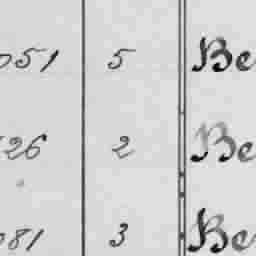 051 5 Be
26 2 Be
081 3 Be